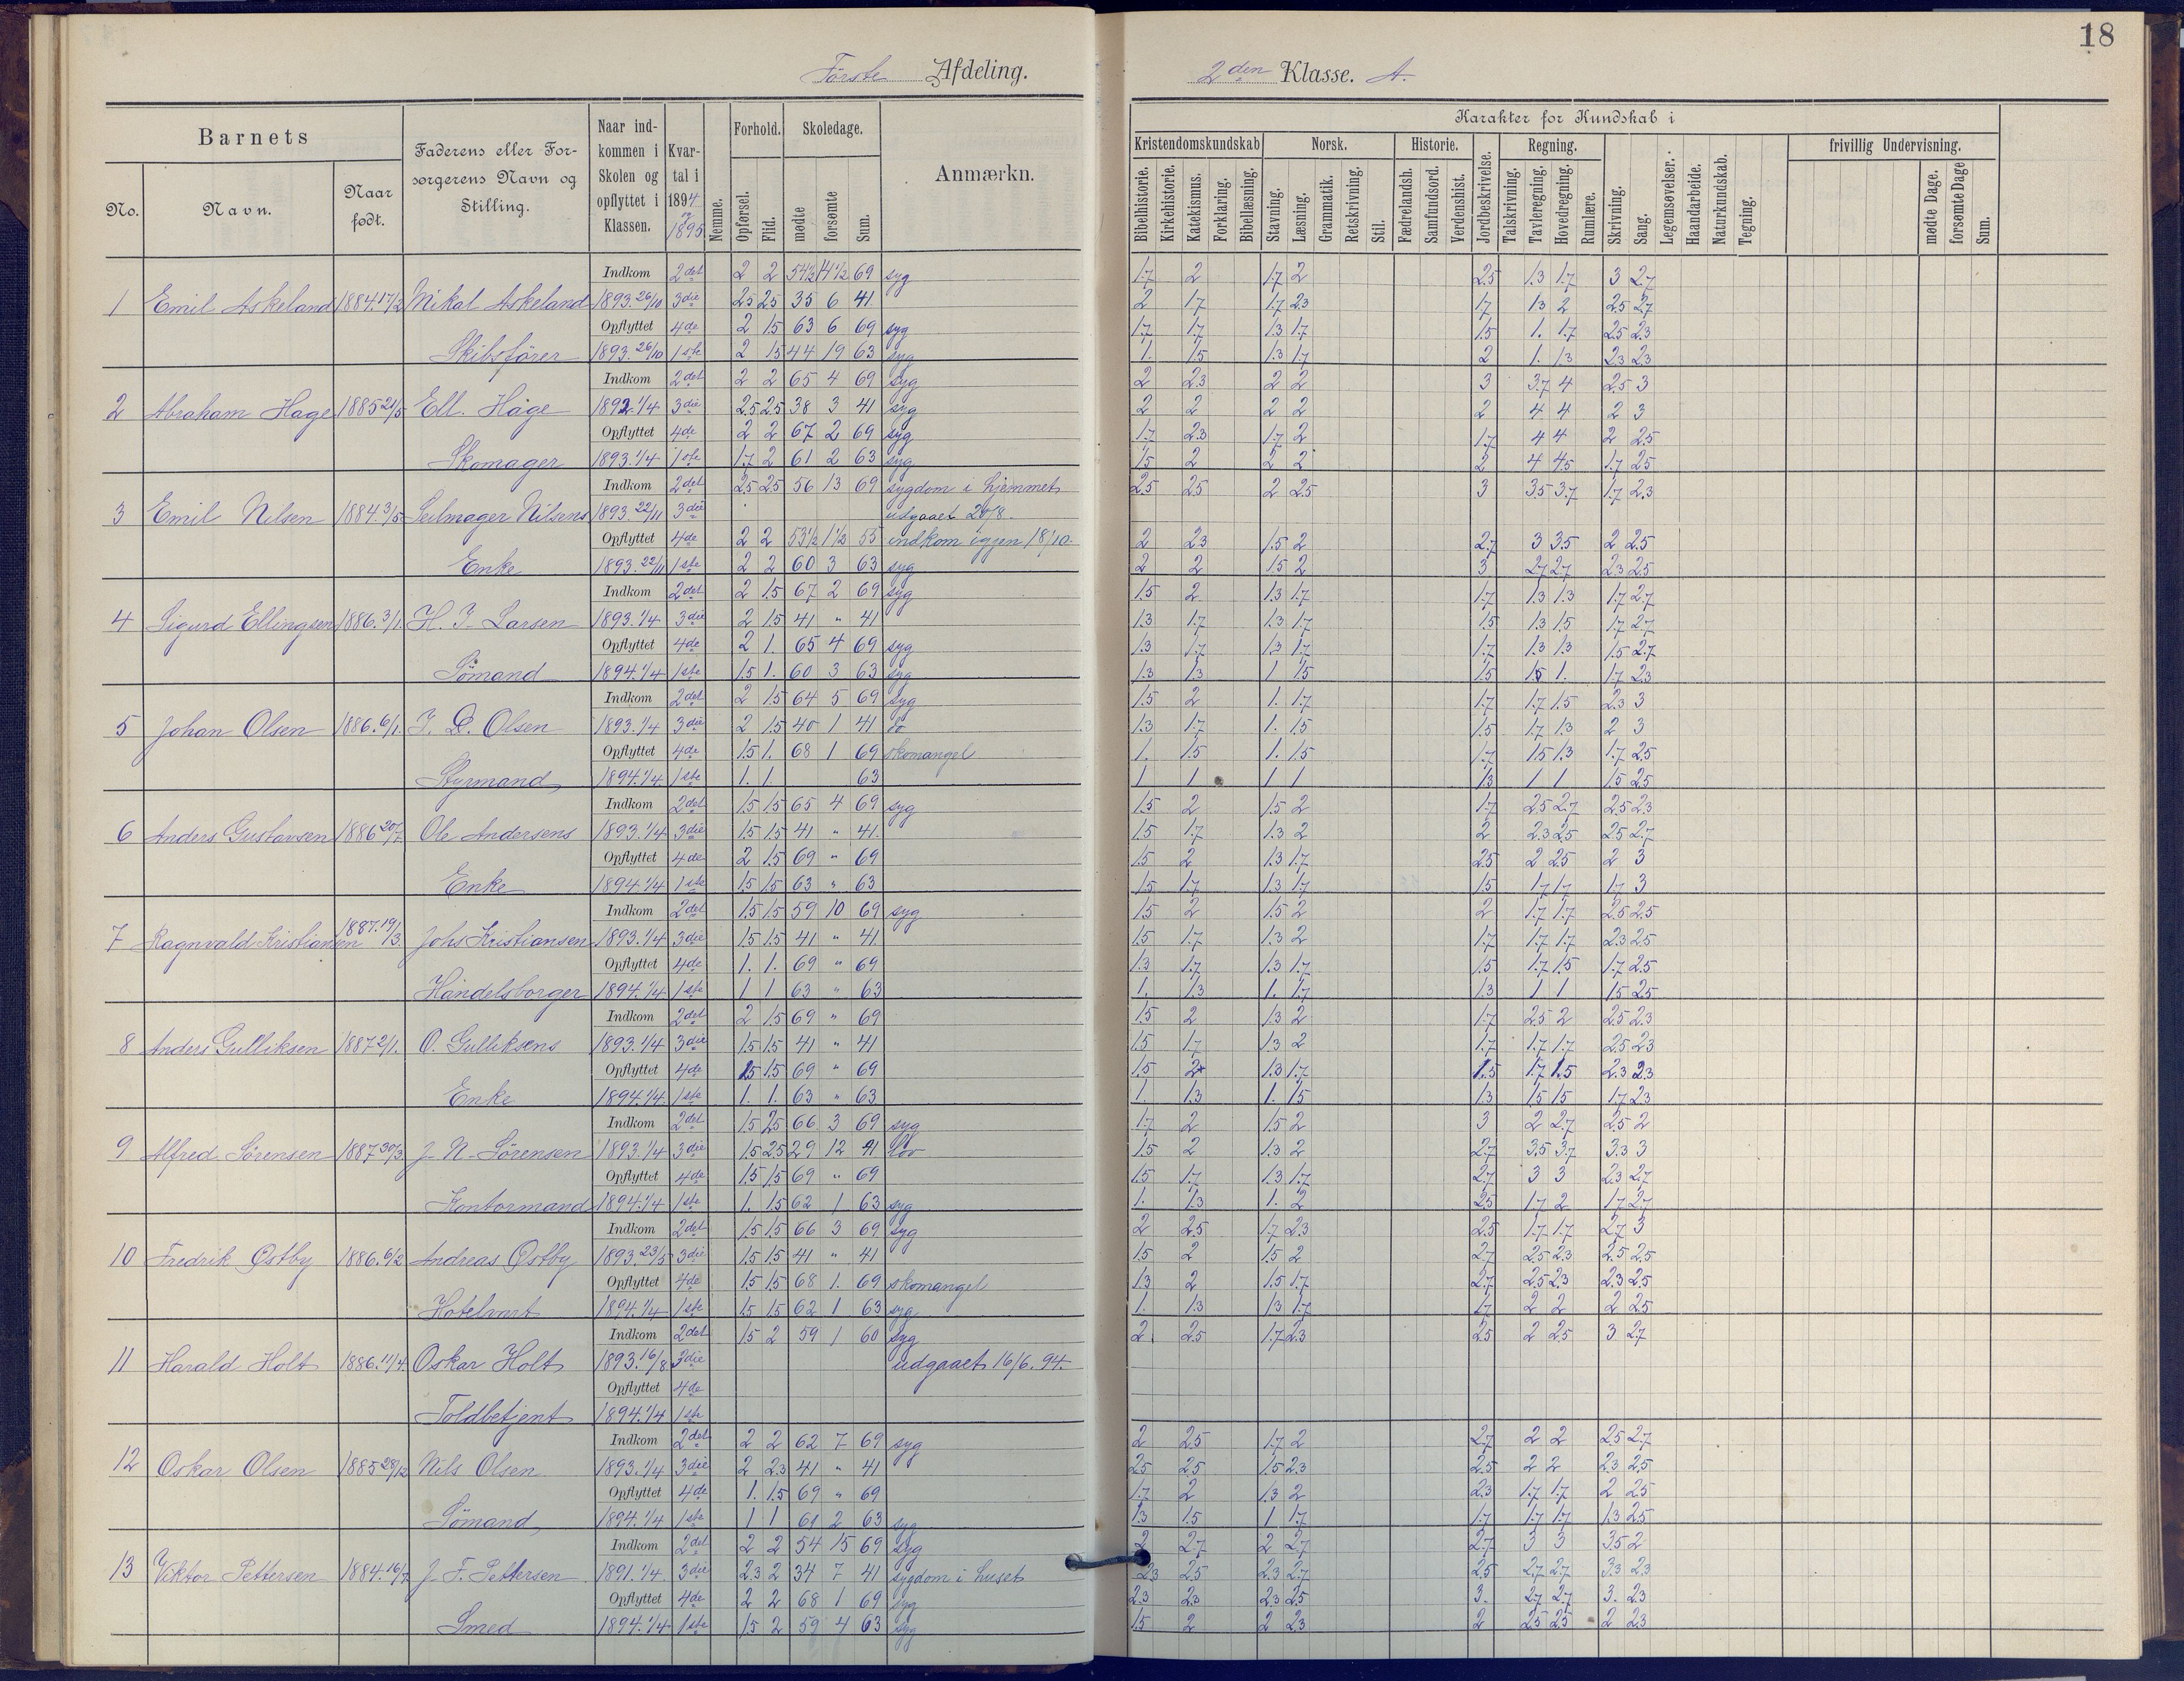 18
Første Afdeling.
2den Klasse. A.
Barnets
No.
Navn.
Naar født.
Faderens eller Forsørgerens Navn og Stilling.
Naar indkommen i Skolen og opflyttet i Klassen.
Kvartal i 1894 og 1895
Nemme.
Forhold.
Opførsel.
Flid.
Skoledage.
mødte
forsømte
Sum.
Anmærkn.
Karakter for Kundskab i
Kristendomskundskab
Bibelhistorie.
Kirkehistorie.
Katekismus.
Forklaring.
Bibellæsning.
Norsk.
Stavning.
Læsning.
Grammatik.
Retskrivning.
Stil.
Historie.
Fædrelandsh.
Samfundsord.
Verdenshist.
Jordbeskrivelse.
Regning.
Talskrivning.
Tavleregning.
Hovedregning.
Rumlære.
Skrivning.
Sang.
Legemsøvelser.
Haandarbeide.
Naturkundskab.
Tegning.
frivillig Undervisning.
mødte Dage.
forsømte Dage
Sum.
Indkom 2det 2 2 54½ 14½ 69 syg 1.7 2 1.7 2 2.5 1.3 1.7 3 2.7
1 Emil Askeland 1884 17/2 Mikal Askeland 1893. 26/10 3die 2.5 2.5 35 6 41. 2 1.7 1.7 2.3 1.7 1.3 2 2.5 2.7
Opflyttet 4de 2 1.5 63 6 69 syg 1.7 1.7 1.3 1.7 1.5 1. 1.7 2.5 2.3
Skibsfører 1893. 26/10 1ste 2 1.5 44 19 63 syg 1. 1.5 1.3 1.7 2 1. 1.3 2.3 2.3
Indkom 2det 2 2 65 4 69 syg 2 2.3 2 2 3 3.7 4 2.5 3
2 Abraham Hage 1885 21/5 Ell. Hage 1892. 1/4 3die 2.5 2.5 38 3 41 syg 2 2 2 2 2 4 4 2 3
Opflyttet 4de 2 2 67 2 69 syg 1.7 2.3 1.7 2 1.7 4 4 2 2.5
Skomager 1893. 1/4 1ste 1.7 2 61 2 63 syg 1.5 2 2 2 2 4 4.5 1.7 2.5
Indkom 2det 2.5 2.5 56 13 69 sygdom i hjemmet 2.5 2.5 2 2.5 3 3.5 3.7 1.7 2.3
3 Emil Nilsen 1884. 3/5 Seilmager Nilsens 1893. 22/11 3die udgaaet
Opflyttet 4de 2 2 53½ 1½ 55 indkom igjen 18/10 2 2.3 1.5 2 2.7 3 3.5 2 2.5
Enke 1893. 22/11 1ste 2 2 60 3 63 syg 2 2 1.5 2 3 2.7 2.7 2.3 2.5
Indkom 2det 2 1.5 67 2 69 syg 1.5 2 1.3 1.7 1.7 1.3 1.3 1.7 2.7
4 Sigurd Ellingsen 1886. 3/1. H. J. Larsen 1893. 1/4 3die 2 1.5 41 " 41 1.3 1.7 1.3 1.7 1.5 1.3 1.5 1.7 2.7
Opflyttet 4de 2 1. 65 4 69 syg 1.3 1.7 1.3 1.7 1.7 1.3 1.3 1.5 2.7
Sømand 1894. 1/4 1ste 1.5 1. 60 3 63 syg 1.3 1.3 1 1.5 1.5 1.5 1. 1.7 2.3
Indkom 2det 2 1.5 64 5 69 syg 1.5 2 1. 1.7 1.7 1.7 1.5 2.3 3
5 Johan Olsen 1886. 6/1. J. D. Olsen 1893. 1/4 3die 2 1.5 40 1 41 do 1.3 1.7 1. 1.5 1.5 1.7 1.3 2 3
Opflyttet 4de 1.5 1. 68 1 69 skomangel 1. 1.5 1. 1.5 1.7 1.5 1.3 1.7 2.5
Styrmand 1894. 1/4 1ste 1. 1. 63 1 1 1 1 1.3 1 1 1.5 2.5
Indkom 2det 1.5 1.5 65 4 69 syg 1.5 2 1.5 2 1.7 2.5 2.7 2.5 2.3
6 Anders Gustavsen 1886 20/7 Ole Andersens 1893. 1/4 3die 1.5 1.5 41 " 41. 1.5 1.7 1.3 2 2 2.3 2.5 2.5 2.7
Opflyttet 4de 2 1.5 69 " 69 1.5 2 1.3 1.7 2.5 2 2.5 2 3
Enke 1894. 1/4 1ste 1.5 1.5 63 " 63 1.5 1.7 1.3 1.7 1.5 1.7 1.7 1.7 3
Indkom 2det 1.5 1.5 59 10 69 syg 1.5 2 1.5 2 2 1.7 1.7 2.5 2.5
7 Ragnvald Kristiansen 1887. 19/3. Johs Kristiansen 1893. 1/4 3die 1.5 1.5 41 " 41. 1.5 1.7 1.3 2 1.7 1.7 1.7 2.3 2.5
Opflyttet 4de 1. 1. 69 " 69 1.3 1.7 1.3 1.7 1.5 1.7 1.5 1.7 2.5
Handelsborger 1894. 1/4 1ste 1 1 63 " 63 1. 1.3 1. 1.7 1.3 1 1 1.5 2.5
Indkom 2det 2 1.5 69 " 69 1.5 2 1.3 2 1.7 2.5 2 2.5 2.3
8 Anders Gulliksen 1887 2/1. O. Gulliksens 1893. 1/4 3die 1.5 1.5 41 " 41 1.5 1.7 1.3 2 1.7 1.7 1.7 2.5 2.3
Opflyttet 4de 1.5 1.5 69 " 69 1.5 2 1.3 1.7 1.5 1.7 1.5 2.3 2.3
Enke 1894. 1/4. 1ste 1. 1. 63 " 63 1. 1.3 1. 1.5 1.3 1.5 1.5 1.7 2.3
Indkom 2det 1.5 2.5 66 3 69 syg 1.7 2 1.5 2 3 2 2.7 2.5 2
9 Alfred Sørensen 1887 30/3. J. N. Sørensen 1893. 1/4 3die 1.5 2.5 29 12 41 lov 1.5 2 1.3 2 2.7 3.5 3.7 3.3 3
Opflyttet 4de 1.5 1.5 69 " 69 1.5 1.7 1.3 1.7 2.7 3 3 2.3 2.7
Kontormand 1894. 1/4 1ste 1. 1.5 62 1 63 syg 1. 1.3 1. 2 2.5 1.7 2 1.7 2.7
Indkom 2det 1.5 1.5 66 3 69 syg 2 2.5 1.7 2.3 2.5 1.7 1.7 2.7 3
10 Fredrik Østby 1886. 6/2 Andreas Østby 1893. 23/5 3die 1.5 1.5 41 " 41 1.5 2 1.5 2 2.7 2.5 2.3 2.5 2.5
Opflyttet 4de 1.5 1.5 68 1. 69 skomangel 1.3 2 1.5 1.7 2.7 2.5 2.3 2.3 2.5
Hotelvært 1894. 1/4 1ste 1.5 1.5 62 1 63 syg 1. 1.3 1.3 1.7 1.7 2 2 2 2.5
Indkom 2det 1.5 2 59 1 60 syg 2. 2.5 1.7 2.3 2.5 2 2.5 3 2.7
11 Harald Holt 1886. 11/4. Oskar Holt 1893. 16/8. 3die udgaaet 16/6. 94.
Opflyttet 4de
Toldbetjent 1894. 1/4 1ste
Indkom 2det 2 2 62 7 69 syg 2 2.5 1.7 2 2.7 2 2 2.5 2.7
12 Oskar Olsen 1885 28/12 Nils Olsen 1893. 1/4 3die 2 2.3 41 " 41 2.5 2.5 1.5 2.3 2.5 2 2 2.3 2.5
Opflyttet 4de 1. 1.5 69 " 69 1.7 2 1.3 2 2.3 1.7 1.7 2 2.5
Sømand, 1894. 1/4 1ste 1 1 61 2 63 syg 1.3 1.5 1 1.7 1.7 1.7 1.7 1.3 2.5
Indkom 2det 2 2 54 15 69 syg 2 2.7 2 2.7 2.7 3 3 3.5 2
13 Viktor Pettersen 1884. 16/7 J. F. Pettersen 1891. 1/4. 3die 2.3 2 34 7 41 sygdom i huset 2.3 2.5 2.3 2.7 2.5 2.7 2.7 3.3 2.3
Opflyttet 4de 2 2 68 1 69 syg 2.3 2.3 2.3 2.5 3. 2.7 2.7 3. 2.3
Smed 1894. 1/4 1ste 1.5 2 59 4 63 syg 1.5 2 2 2.3 2 2.5 2.5 2 2.3